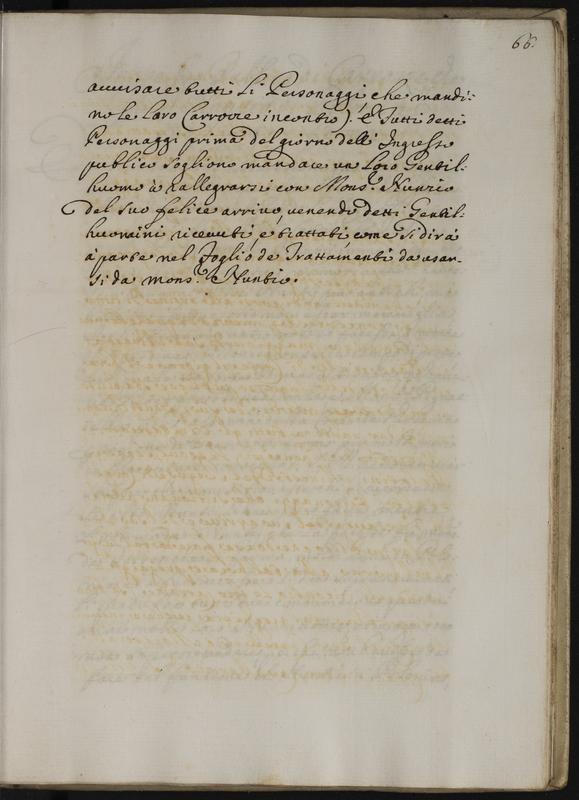 66.
auuisare tutti li Personaggi che mandi-
no le loro Carrozze incontro). E Tutti detti
Personaggi prima del giorno dell' Ingresso
publico sogliono mandare un loro Gentil-
huomo à rallegrarsi con Mons.r Nunzio
del suo felice arriuo, uenendo detti Gentil-
huomini riceuuti, e trattati come si dirà
à parte nel foglio de Trattamenti da usar-
si da Mons.r Nuntio.